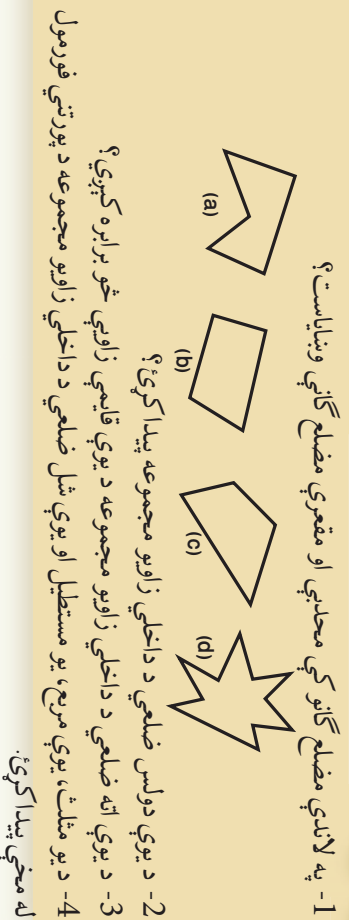 1- په لاندې مضلع گانو کې محدبې او مقعرې مضلع گانې وښاياست؟
(a) (b) (c) (d)
2- د يوې دولس ضلعي د داخلي زاويو مجموعه پيدا کړئ؟
3- د يوې اته ضلعي د داخلي زاويو مجموعه د يوې قايمې زاويې څو برابره کېږي؟
4- د يو مثلث، يوې مربع، يو مستطيل او يوې شل ضلعي د داخلي زاويو مجموعه د پورتني فورمول
له مخې پيدا کړئ.